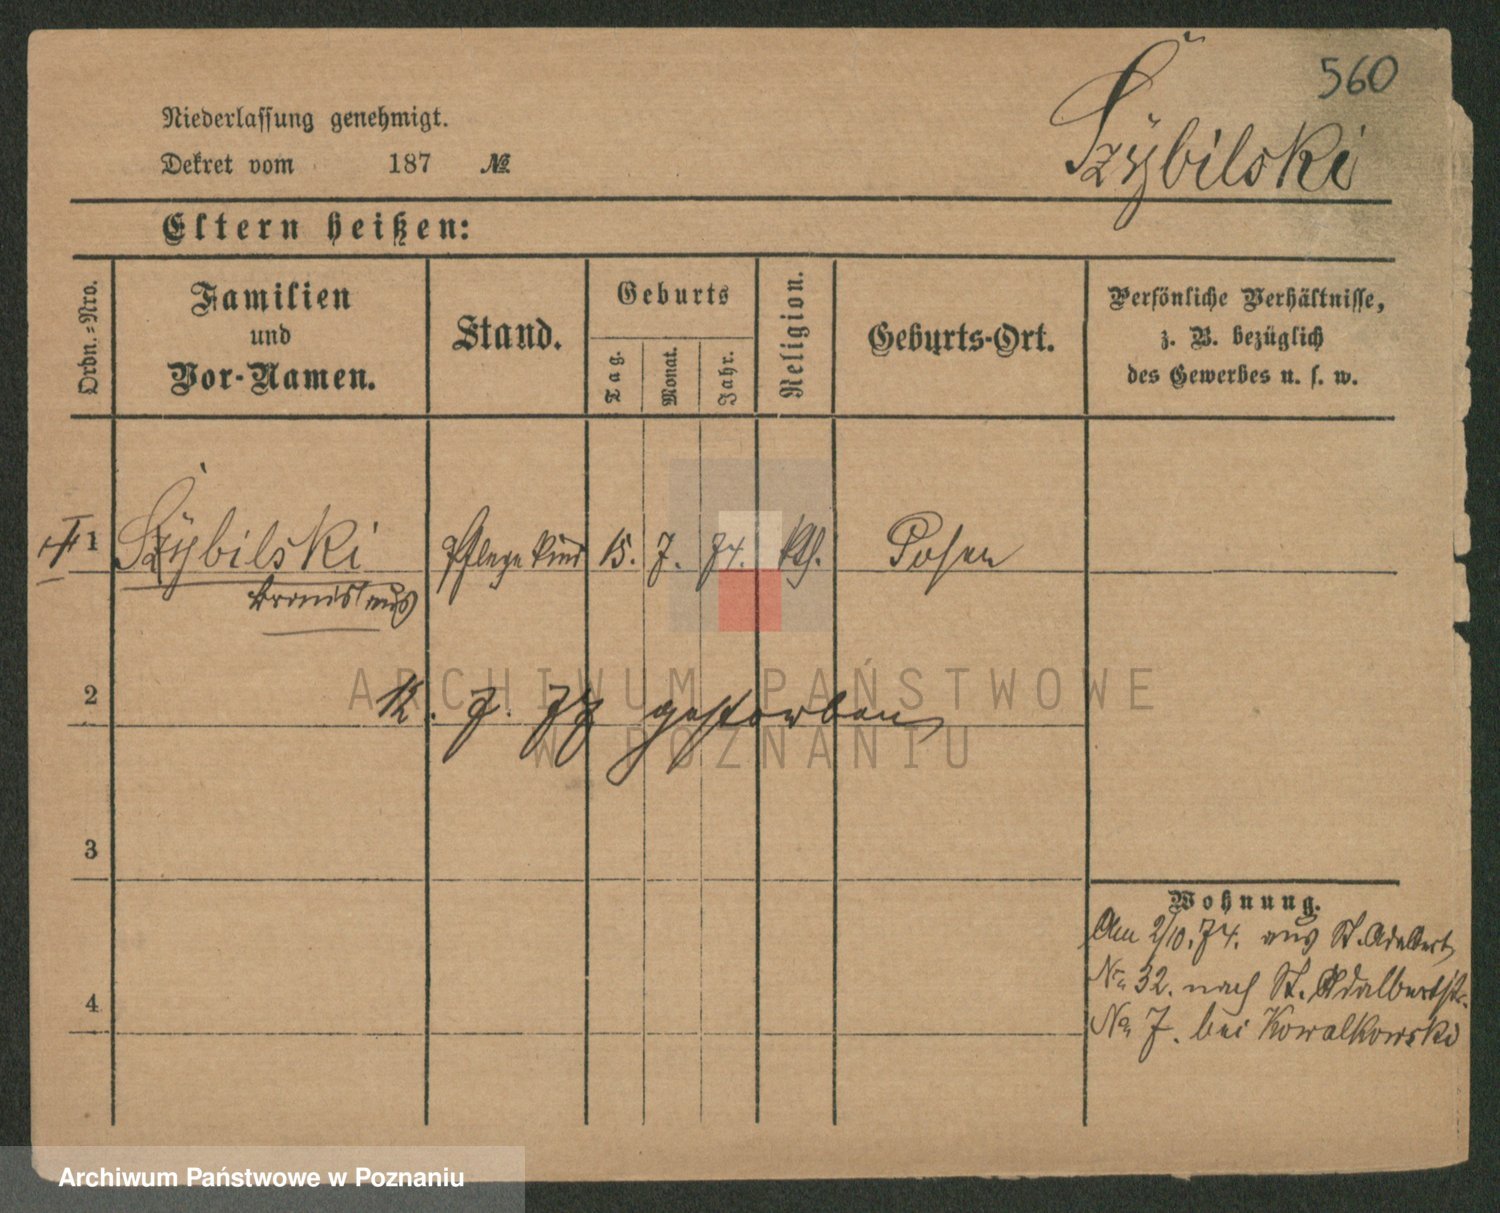 560
Szybilski
Niederlassung genehmigt.
Dekret vom 187 №
Eltern heißen:
Ordn.=Nro.
Familien
und
Vor-Namen.
Stand.
Geburts
Tag.
Monat.
Jahr.
Religion.
Geburts-Ort.
Persönliche Verhältnisse,
z. B. bezüglich
des Gewerbes u. s. w.
1 Szybilski Pflegekind 15. 7. 74. kth. Posen
Bronislaus
2
12. 7. 77 gestorben
3
Wohnung.
Am 2/10.74. aus St. Adalbert
No 32. nach St. Adalbertstr.
4
No 7. bei Kowalkowski
ARCHIWUM PAŃSTWOWE
W POZNANIU
Archiwum Państwowe w Poznaniu